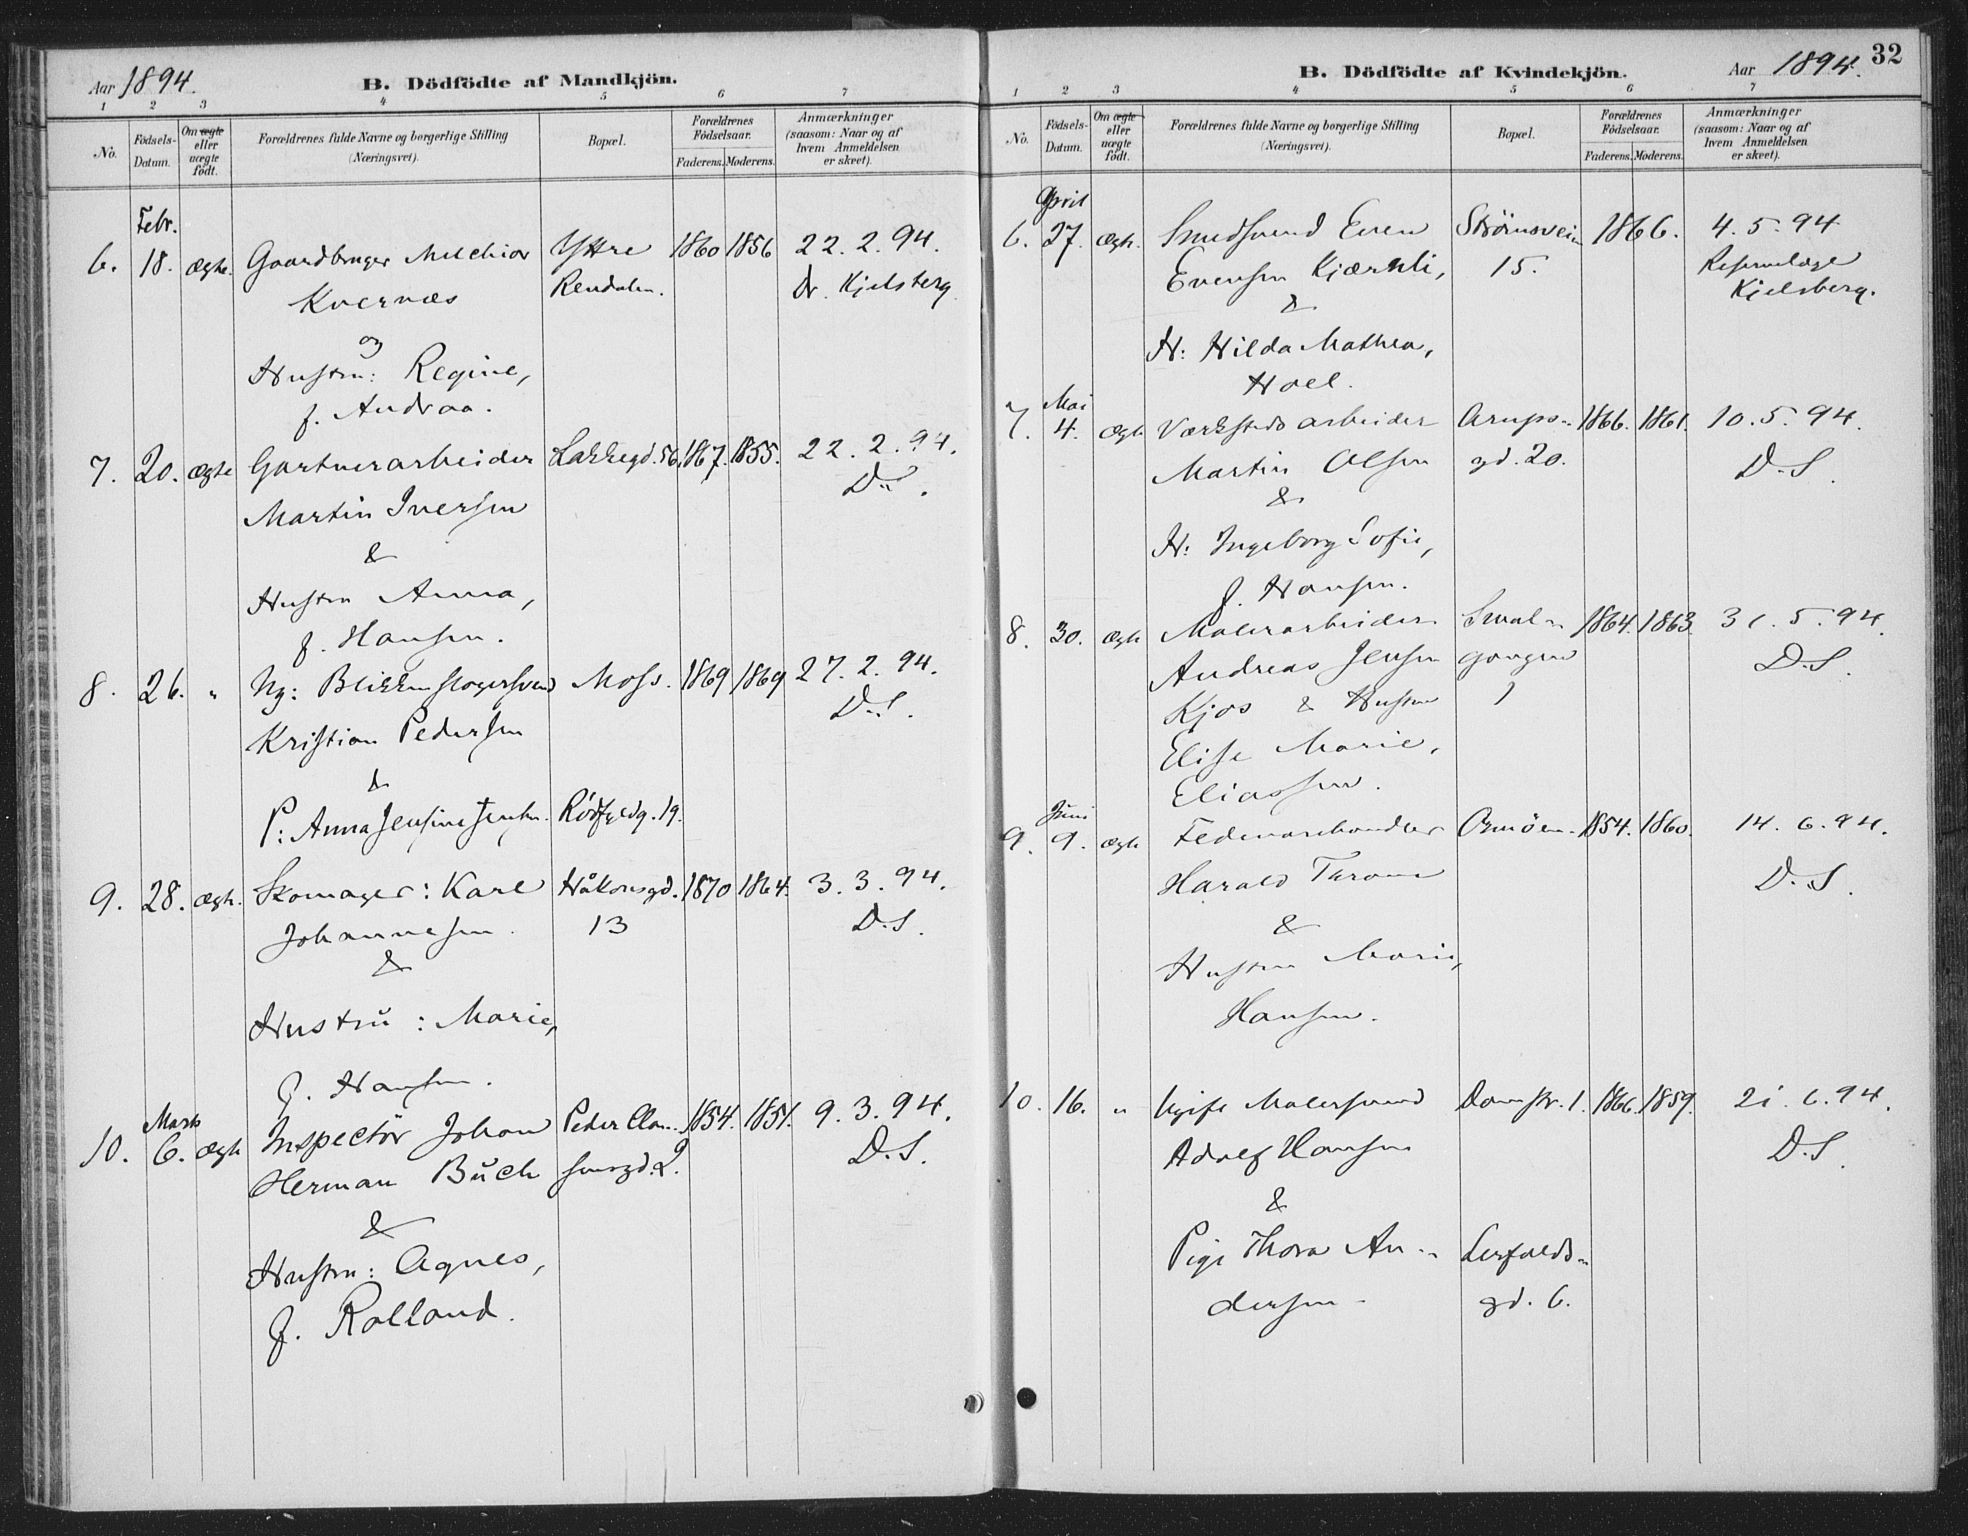 Aar 1894.
B. Dödfödte af Mandkjön.
1 2 3 4 5 6 7
No.
Födsels-Datum.
Om ægte eller uægte födt.
Forældrenes fulde Navne og borgerlige Stilling (Næringsvei).
Bopæl.
Forældrenes Födselsaar.
Faderens. Moderens.
Anmærkninger (saasom: Naar og af hvem Anmeldelsen er skeet).
Febr.
6. 18. ægte. Gaardbruger Melchior Yttre 1860 1856 22.2.94.
Kvernæs Rendalen. Dr. Kjelsberg
og
Hustru: Regine,
f. Andraa.
7. 20. ægte Gartnerarbeider Lakkegd. 56. 1867. 1855. 22.2.94.
Martin Iversen D.S.
&
Hustru Anna,
f. Hansen.
8. 26. " Ug: Blikkenslagersvend Moss. 1869 1869 27.2.94.
Kristian Pedersen D.S.
&
P: Anna Jensine Jensen. Rödfyldg. 19.
9. 28. ægte. Skomager: Karl Håkonsgd. 1870 1864. 3.3.94.
Johannesen. 13 D.S.
&
Hustru: Marie,
f. Hansen.
Marts
10. 6. ægte Inspectör Johan Peder Clau- 1854. 1851. 9.3.94.
Herman Buch sensgd. 2. D.S.
&
Hustru: Agnes,
f. Rolland.
B. Dödfödte af Kvindekjön.
Aar 1894.
32
1 2 3 4 5 6 7
No.
Födsels-Datum.
Om ægte eller uægte födt.
Forældrenes fulde Navne og borgerlige Stilling (Næringsvei).
Bopæl.
Forældrenes Födselsaar.
Faderens. Moderens.
Anmærkninger (saasom: Naar og af hvem Anmeldelsen er skeet).
April
6. 27. ægte. Smedsvend Even Strömsveien 1866. 4.5.94
Evensen Kjærnli, 15. Reservelæge
& Kjelsberg.
H: Hilda Mathea,
Hoel.
Mai
7. 4. ægte Værkstedsarbeider Arups- 1866. 1861. 10.5.94.
Martin Olsen gd. 20. D.S.
&
H: Ingeborg Sofie,
f. Hansen.
8. 30. ægte Malerarbeider Smal- 1864. 1863 31.5.94.
Andreas Jensen gangen D.S.
Kjos & Hustru 1
Elise Marie,
Eliassen.
Juni
9. 9. ægte Fedevarehandler Ormöen. 1854. 1860. 14.6.94.
Harald D.S.
&
Hustru Marie,
Hansen.
10. 16. " Ugift Malersvend 1. 1866. 1859. 21.6.94.
Adolf Hansen D.S.
&
Pige Thora An- Lerfalds-
dersen gd. 6.